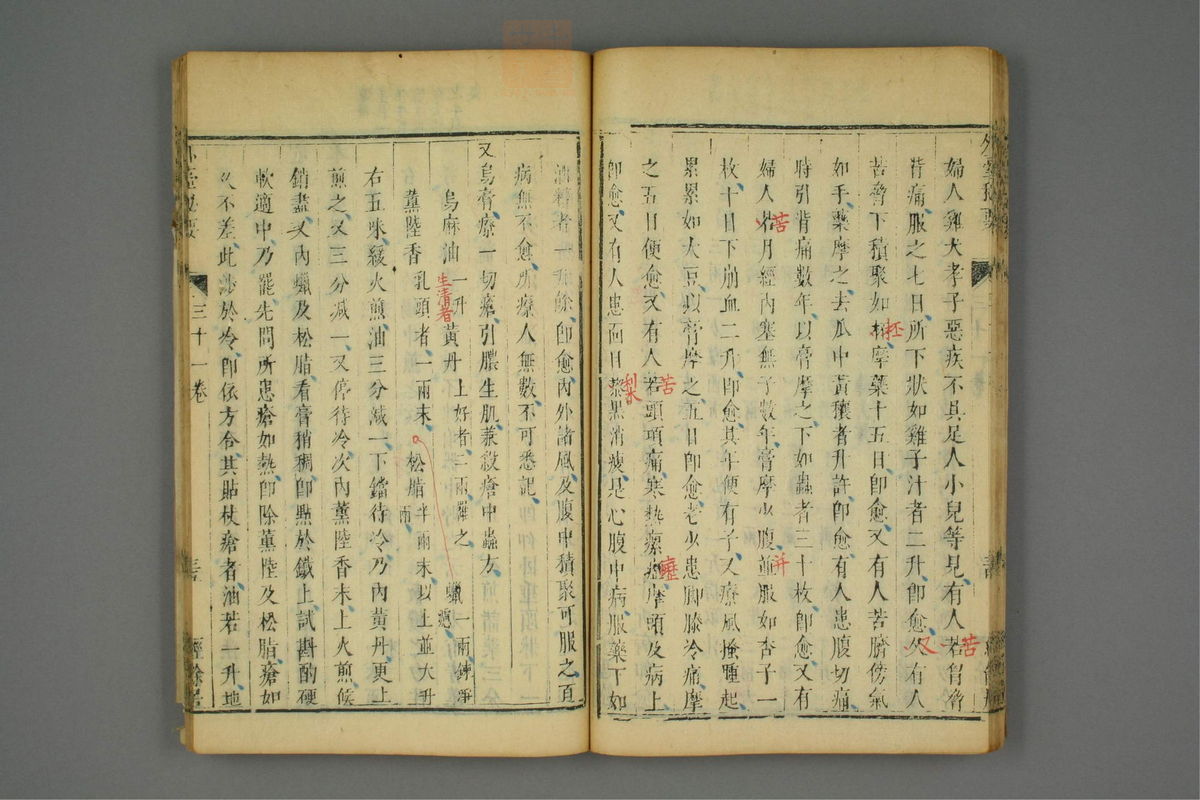 外臺秘要
婦人雞犬孝子惡疾不具足人小兒等見有人若胷脅
苦
背痛服之七日所下狀如雞子汁者二升即愈久有人
又
苦脅下積聚如杯摩藥十五日即愈又有人苦臍傍氣
如手藥摩之去瓜中黃穰者升許即愈有人患腹切痛
時引背痛數年以膏摩之下如蟲者三十枚即愈又有
婦人若月經內塞無子數年膏摩少腹並服如杏子一
苦
并
枚十日下崩血二升即愈其年便有子又療風搔腫起
累累如大豆以膏摩之五日即愈老少患腳膝冷痛摩
之五日便愈又有人若頭項痛寒熱瘰癧摩頭及病上
苦
癧
即愈又有人患面目黎黑消瘦是心腹中病服藥下如
油籍者一升餘即愈內外諸風及腹中積聚可服之百
病無不愈所療人無數不可悉記
又烏膏療一切瘡引膿生肌兼殺瘡中蟲方
烏麻油一升黃丹上好者二兩羅之蠟一兩鍊淨
生清者
薰陸香乳頭者一兩末松脂半兩末以上並大升
右五味緩火煎油三分減一下鐺待冷乃內黃丹更上
煎之又三分減一又停待冷次內薰陸香末上火煎候
銷盡又內蠟及松脂看膏稍稠即點於鐵上試斟酌硬
軟適中乃罷先問所患瘡如熱即除薰陸及松脂瘡如
久不差此涉於冷即依方合其貼杖瘡者油若一升地
三十一卷
經餘居